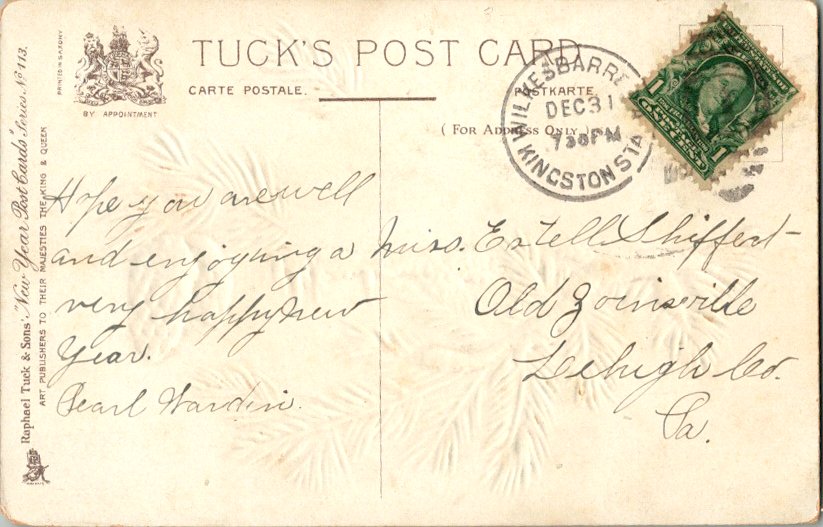 PRINTED IN SAXONY
BY APPOINTMENT
TUCK'S POST CARD
CARTE POSTALE.
POSTKARTE.
( For Address Only. )
WILKESBARRE
DEC 31
7 30 PM
KINGSTON STA
1
1
Raphael Tuck & Sons' "New Year Post Cards" Series No. 113.
ART PUBLISHERS TO THEIR MAJESTIES THE KING & QUEEN
Hope you are well
and enjoying a
very happy new
Year.
Pearl
Miss. Estell Shiffert
Old Zoinsville
Lehigh Co.
Pa.